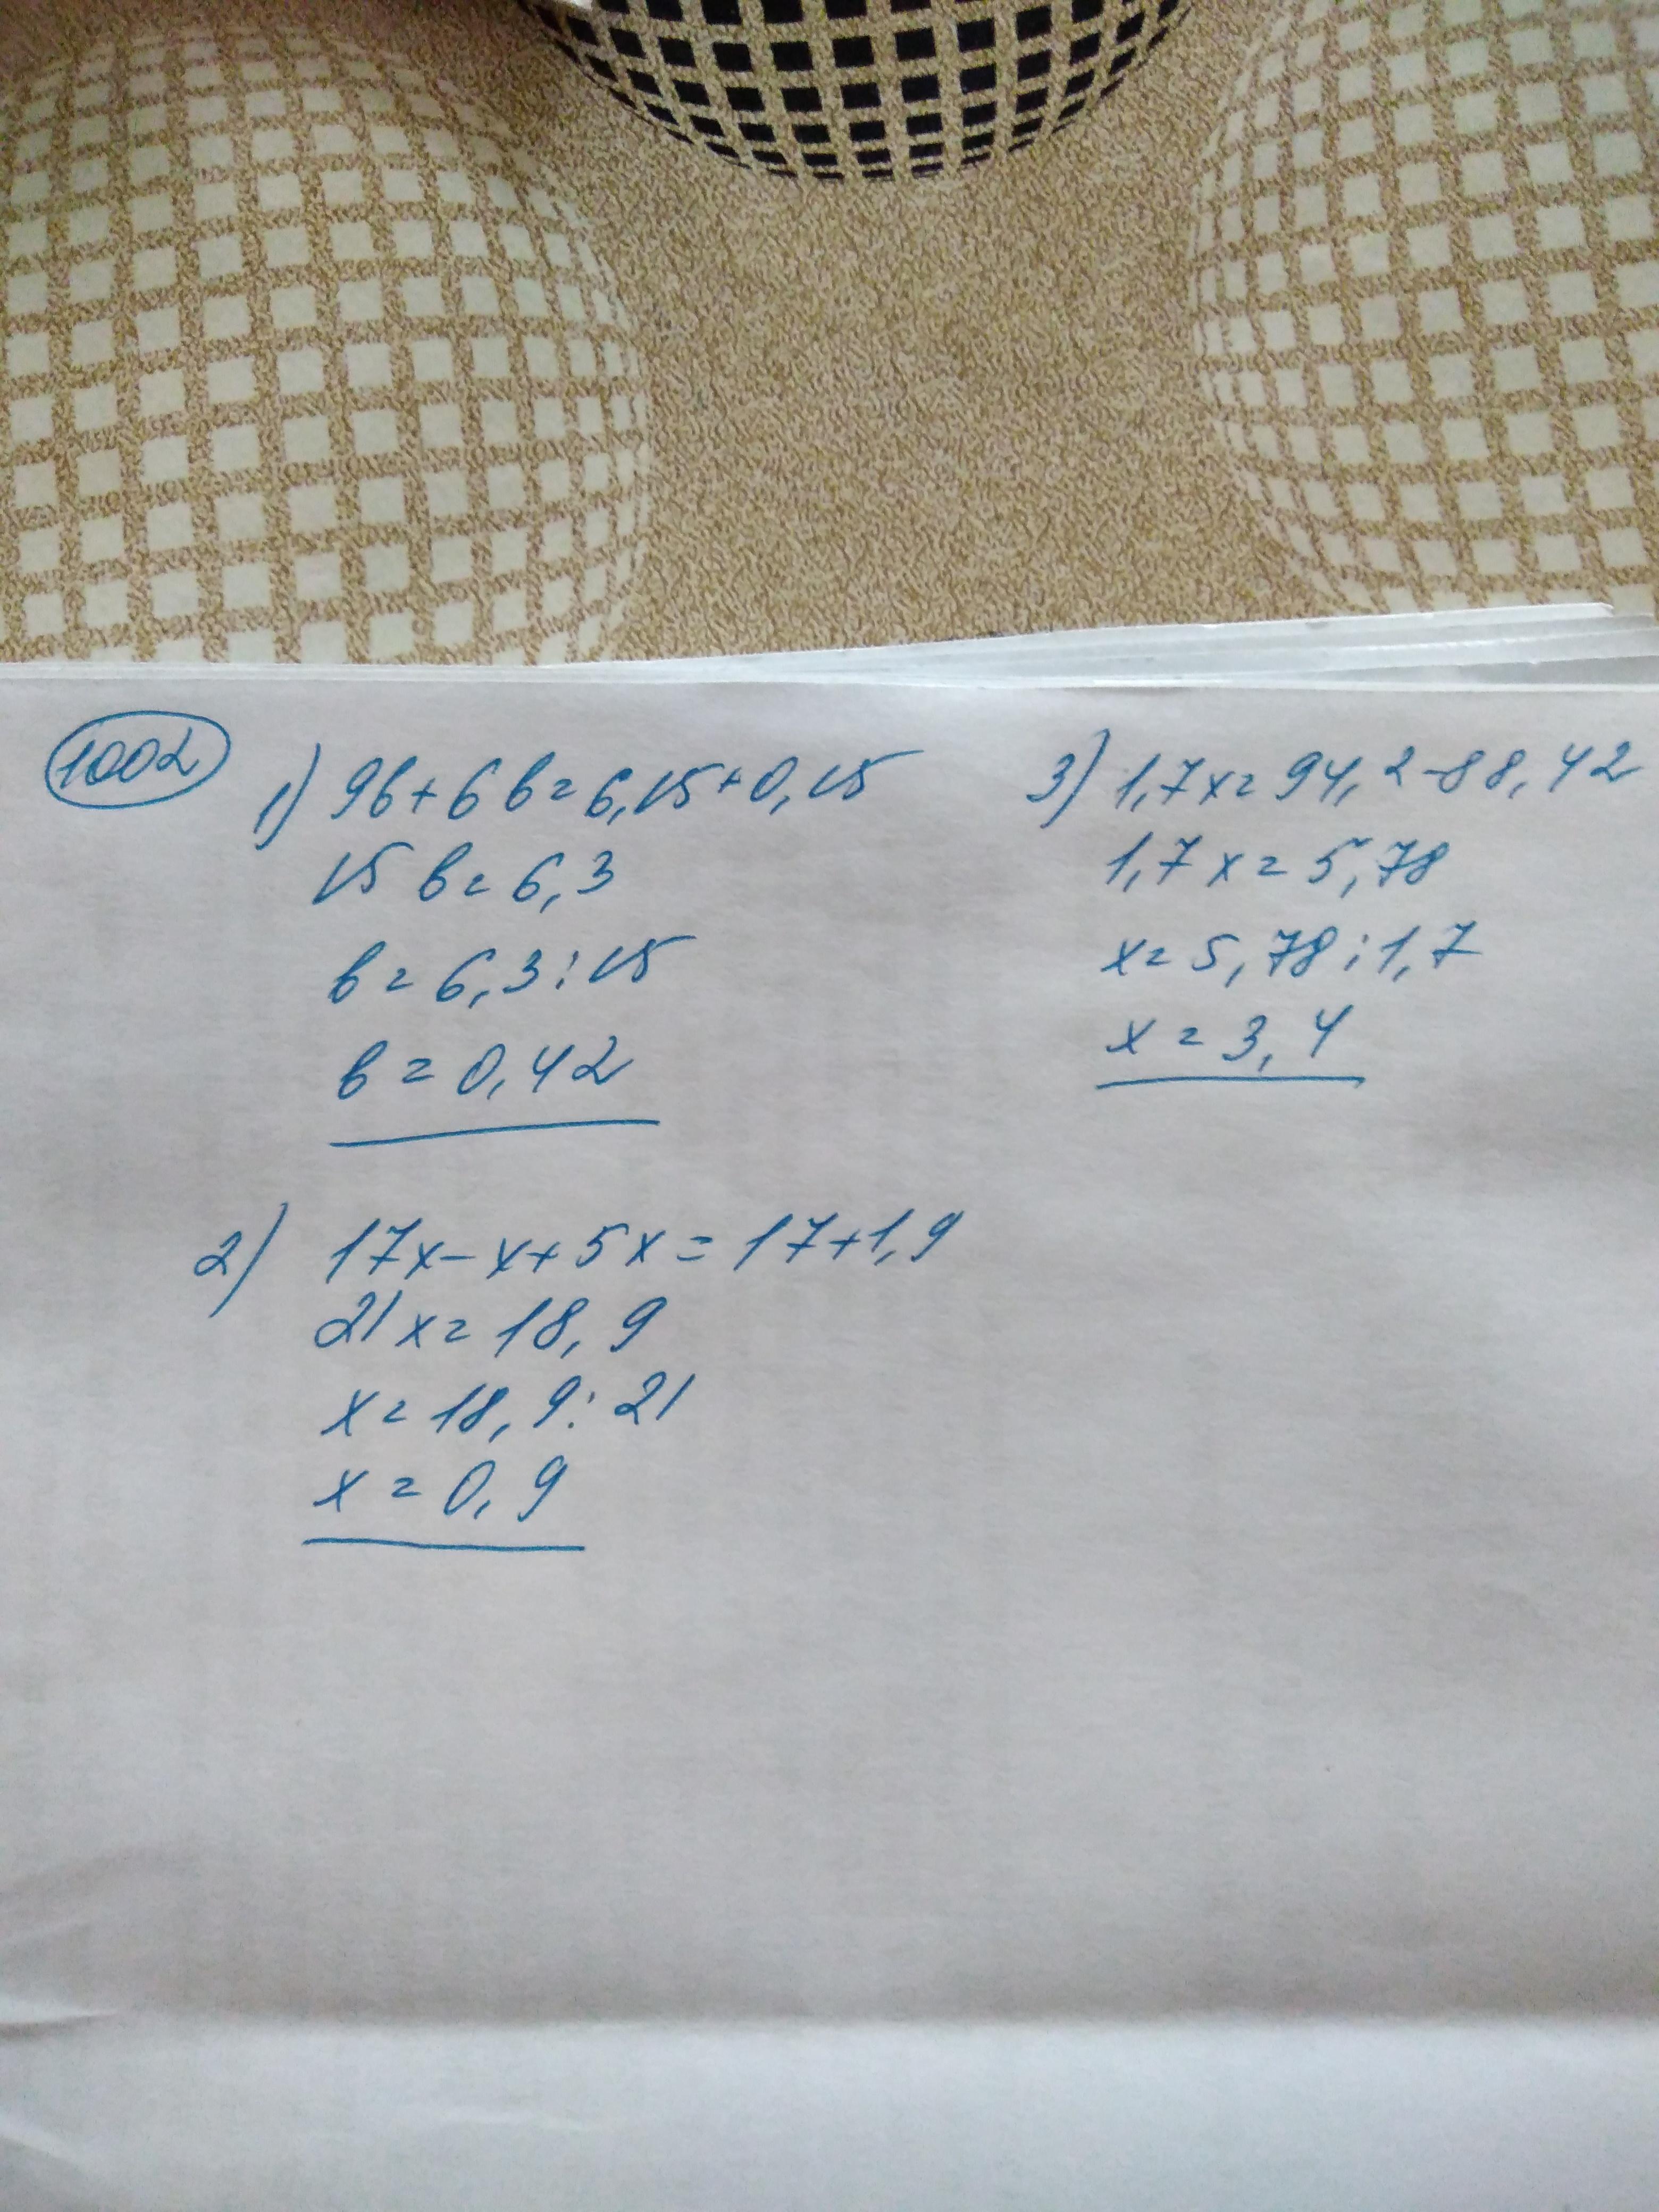 1002
1) 9в+6в=6,15+0,15
15в=6,3
в=6,3:15
в=0,42
2) 17х-х+5х=17+1,9
21х=18,9
х=18,9:21
х=0,9
3) 1,7х=94,2-88,42
1,7х=5,78
х=5,78:1,7
х=3,4